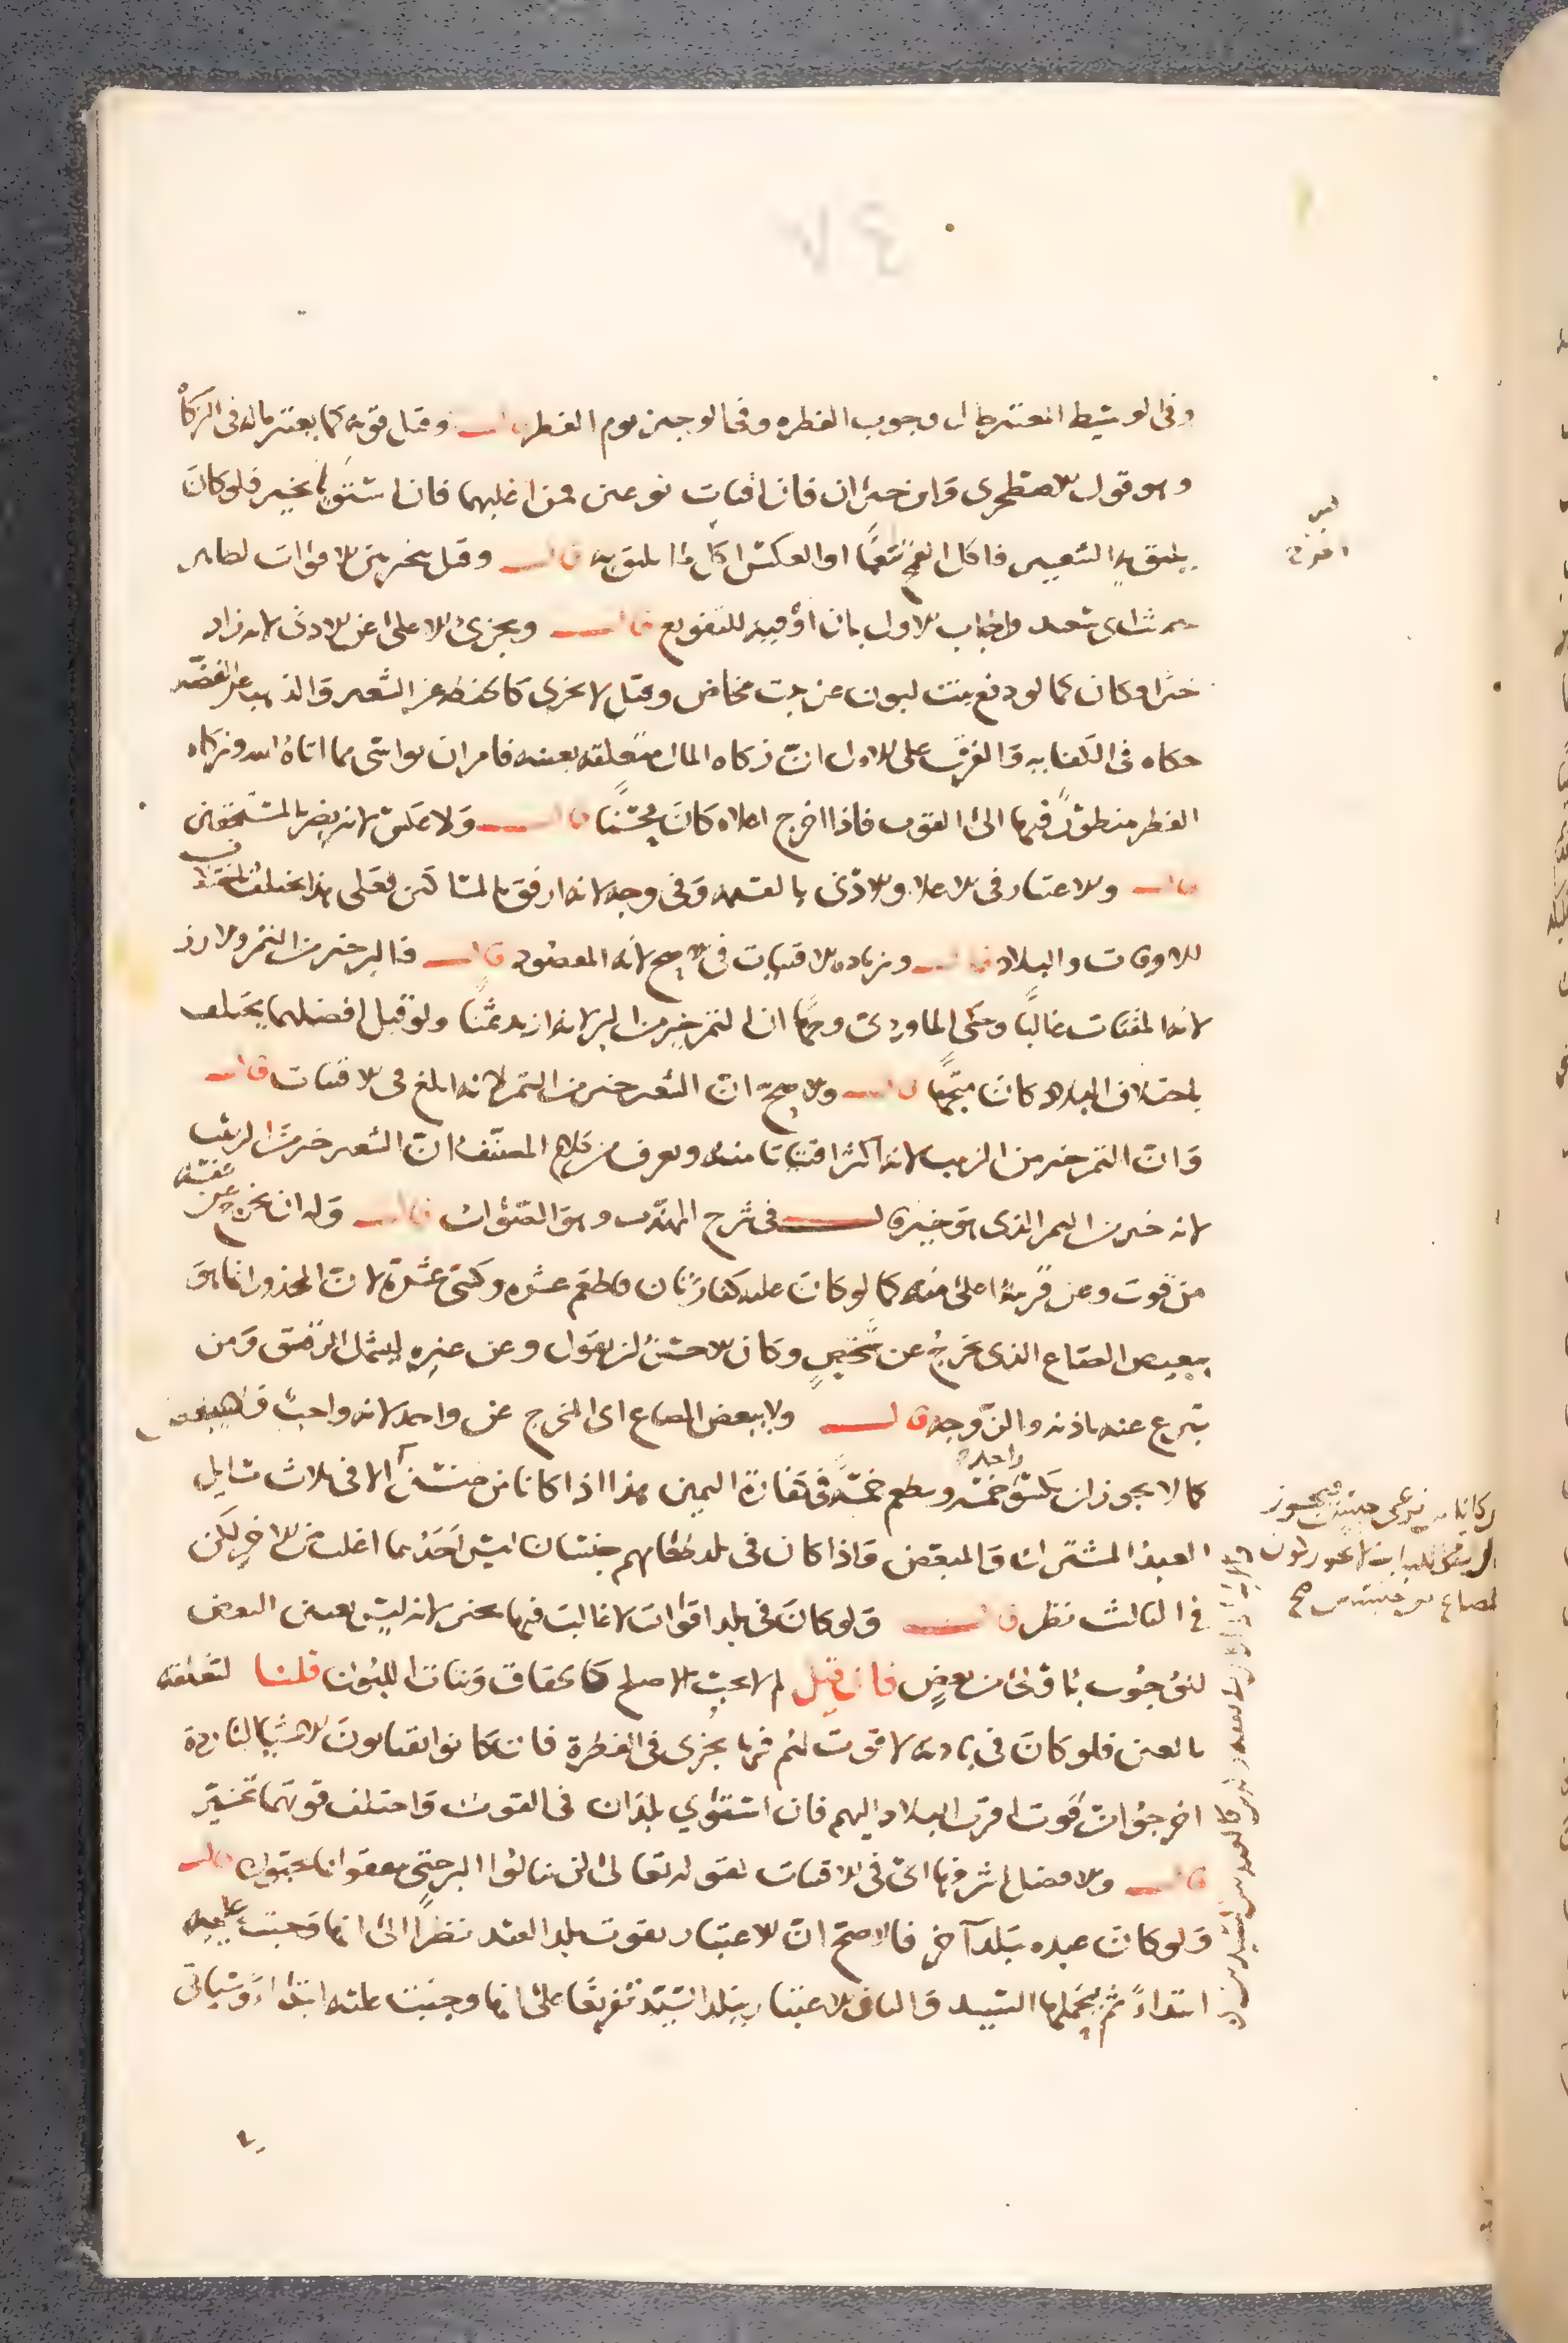 وفي الوسيط المعتبر حال وجوب الفطره وفي الوجيز يوم الفطر قال وقيل قوته كما يعتبر ماله في الزكاة
وهو قول الاصطخري وابن خيران فان اقتات نوعين فمن اغلبهما فان استويا تخير فلو كان
يليق به الشعير فاكل القمح تنعما او العكس اكل ما يليق به قال وقيل يتخير بين الاقوات لظاهر
حديث ابي سعيد واجاب الاول بان او فيه للتنويع قال ويجزئ الاعلى عن الادنى لانه زاد
خيرا وكان كما لو دفع بنت لبون عن بنت مخاض وقيل لا يجزي كالحنطه عن الشعير والذهب عن الفضه
حكاه في الكفايه والفرق على الاول ان زكاه المال متعلقه بعينه فامر ان يواسي مما اتاه الله وزكاه
الفطر منظور فيها الى القوت فاذا اخرج اعلاه كان محسنا قال ولا عكس لانه يضر بالمستحقين
قال والاعتبار في الاعلا والادنى بالقيمه وفي وجه لانه ارفق بالمساكين فعلى هذا يختلف باختلاف
الاوقات والبلاد قال وبزياده الاقتيات في الاصح لانه المقصود قال فالبر خير من التمر والارز
لانه المقتات غالبا وحكى الماوردي وجها ان التمر خير من البر لانه ازيد ثمنا ولو قيل افضلهما يختلف
باختلاف البلاد كان متجها قال والاصح ان الشعير خير من التمر لانه ابلغ في الاقتيات قال
وان التمر خير من الزبيب لانه اكثر اقتياتا منه ويعرف من كلام المصنف ان الشعير خير من الزبيب
لانه خير من التمر الذي هو خيره قال في شرح المهذب وهو الصواب قال وله ان يخرج عن نفسه
من قوت وعن قريبه اعلى منه كما لو كان عليه كفارتان فاطعم عشره وكسى عشرة لان المحذور انما هو
تبعيض الصاع الذي يخرج عن شخص وكان الاحسن ان يقول وعن غيره ليشمل الرقيق ومن
تبرع عنه باذنه والزوجه قال ولا يبعض الصاع اي المخرج عن واحد لانه واجب فلا يبعض
كما لا يجوز ان يكسو خمسه ويطعم خمسة في كفارة واحدة اليمين هذا اذا كانا من جنسين الا في ثلاث مسايل
العبد المشترك والمبعض واذا كان في بلد طعامهم جنسان ليس احدهما اغلب من الاخر لكن
في الثالث نظر قال ولو كان في بلد اقوات لا غالب فيها تخير لانه ليس تعيين البعض
للوجوب باولى من بعض فان قيل لم لا يجب الاصلح كالحقاق وبنات اللبون قلنا لتعلقه
بالعين فلو كان في باديه لا قوت لهم فيها يجزى في الفطرة فان كانوا يقتاتون الاشيا النادرة
اخرجوا من قوت اقرب البلاد اليهم فان استوى بلدان في القرب واختلف قوتهما تخير
قال والافضل اشرفها اي في الاقتيات لقوله تعالى لن تنالوا البر حتى تنفقوا مما تحبون قال
ولو كان عبده ببلد آخر فالاصح ان الاعتبار بقوت بلد العبد نظرا الى انها وجبت عليه
ابتداء ثم يتحملها السيد والثاني الاعتبار ببلد السيد تفريعا على انها وجبت عليه ابتداء وسياتي